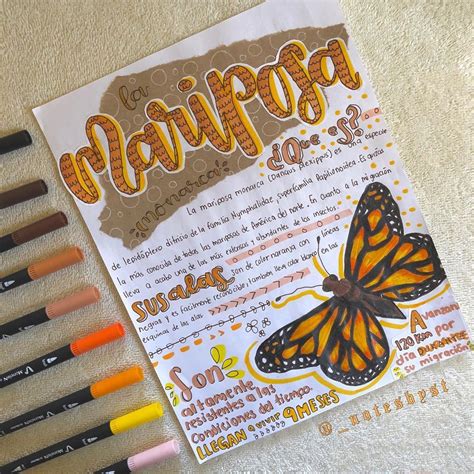 la
Mariposa
monarca
¿Que es?
La mariposa monarca (Danaus plexippus) es una especie
de lepidóptero ditrisio de la familia Nymphalidae, superfamilia Papilionoidea. Es quizás
la más conocida de todas las mariposas de América del norte. En cuanto a la migración
lleva a acabo una de las más extensas y abundantes de los insectos
SUS alas son de color naranja con líneas
negras y es fácilmente reconocible, también lleva color blanco en las
esquinas de las alas.
Son
altamente
resistentes a las
condiciones del tiempo.
LLEGAN a vivir 9 MESES
Avanzan
120 Km por
día DURANTE
su migración
@_notesbyst